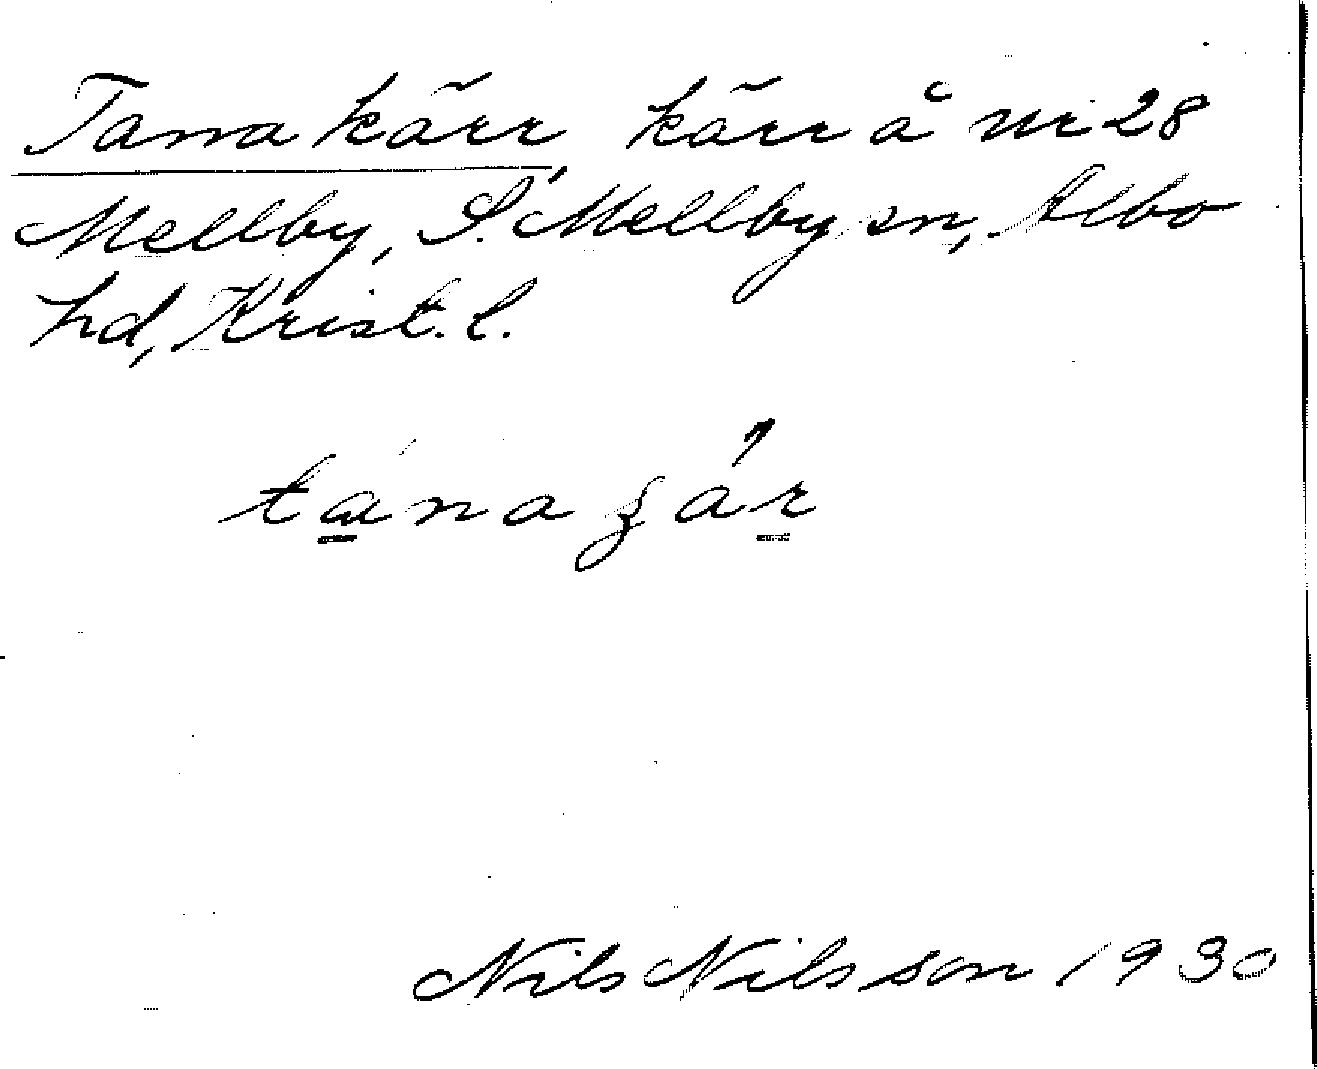 Tanakärr, kärr å nr 28
Mellby, S. Mellby sn, Albo
hd, Krist. l.
tána ʒár
Nils Nilsson 1930